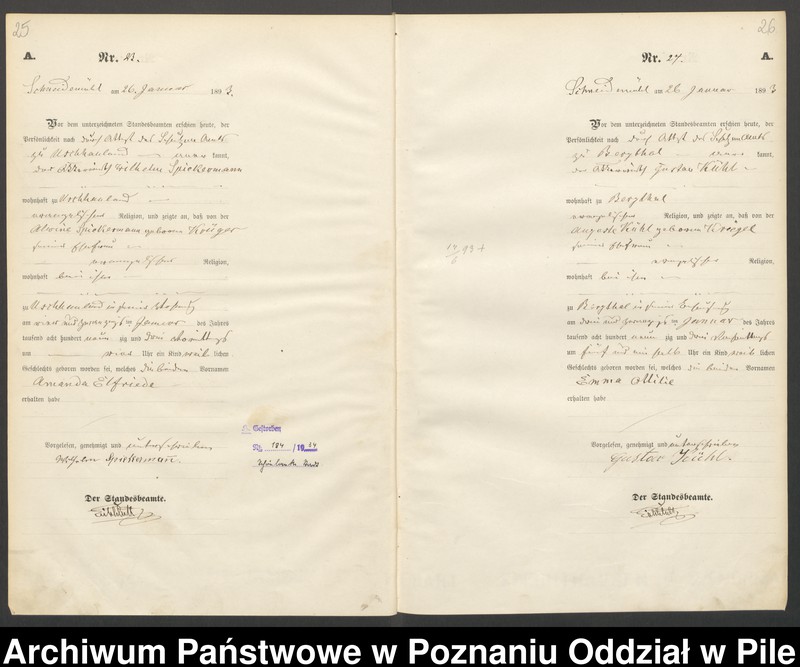 25
A.
Nr. 23.
Schneidemühl am 26. Januar 1893.
Vor dem unterzeichneten Standesbeamten erschien heute, der
Persönlichkeit nach durch Attest des Schulzen Amts
zu Uschhauland kannt,
der Wilhelm Spickermann
wohnhaft zu Uschhauland
evangelischer Religion, und zeigte an, daß von der
Alwine Spickermann geborene Krüger
seiner Ehefrau
evangelischer Religion,
wohnhaft bei ihm
zu Uschhauland in seiner Behausung
am vier und zwanzigsten Januar des Jahres
tausend acht hundert neun zig und drei Vormittags
um vier Uhr ein Kind weib lichen
Geschlechts geboren worden sei, welches die beiden Vornamen
Amanda Elfriede
erhalten habe
Vorgelesen, genehmigt und unterschrieben
Wilhelm Spickermann.
Der Standesbeamte.
Gestorben
Nr. 184 / 19
26
Nr. 24.
A.
Schneidemühl am 26 Januar 1893
Vor dem unterzeichneten Standesbeamten erschien heute, der
Persönlichkeit nach durch Attest des Schulzen Amts
zu Bergthal kannt,
der Gustav Kühl
wohnhaft zu Bergthal
evangelischer Religion, und zeigte an, daß von der
Auguste Kühl geborene Kriegel
seiner Ehefrau
evangelischer Religion,
wohnhaft bei ihm
zu Bergthal in seiner Behausung
am drei und zwanzigsten Januar des Jahres
tausend acht hundert neun zig und drei Nachmittags
um fünf und ein halb Uhr ein Kind weib lichen
Geschlechts geboren worden sei, welches die beiden Vornamen
Emma Ottilie
erhalten habe
Vorgelesen, genehmigt und unterschrieben
Gustav Kühl.
Der Standesbeamte.
Archiwum Państwowe w Poznaniu Oddział w Pile